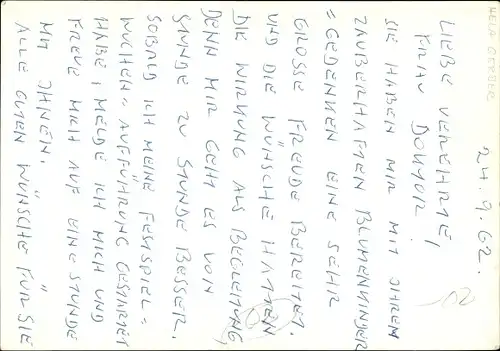 HEIA GERBER
24.9.62.
LIEBE VEREHRTE,
FRAU DOKTOR,
SIE HABEN MIR MIT IHREM
ZAUBERHAFTEN BLUMENKINDER
=GEDENKEN EINE SEHR
GROSSE FREUDE BEREITET.
UND DIE WÜNSCHE HATTEN
DIE WIRKUNG ALS BEGLEITUNG,
DENN MIR GEHT ES VON
STUNDE ZU STUNDE BESSER.
SOBALD ICH MEINE FESTSPIEL=
WOCHEN=AUFFÜHRUNG GESTARTET
HABE, MELDE ICH MICH UND
FREUE MICH AUF EINE STUNDE
MIT IHNEN.
ALLE GUTEN WÜNSCHE FÜR SIE